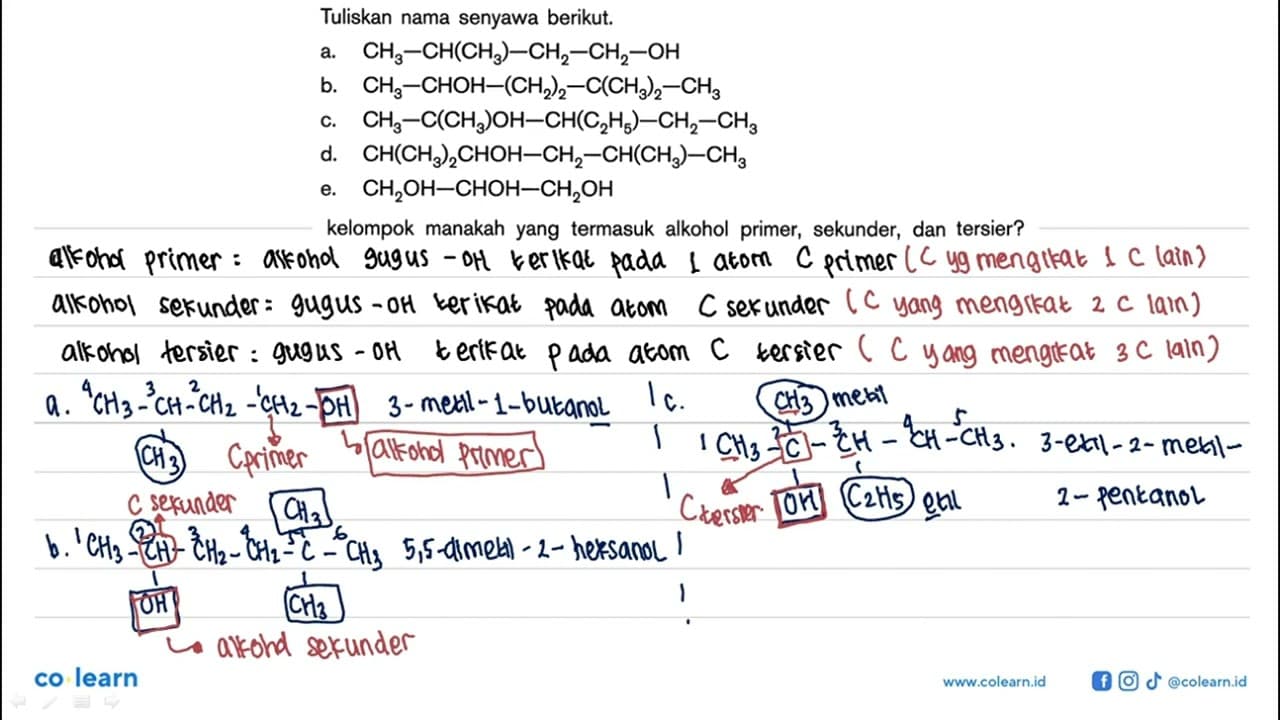 Tuliskan nama senyawa berikut.
a. CH₃—CH(CH₃)—CH₂—CH₂—OH
b. CH₃—CHOH—(CH₂)₂—C(CH₃)₂—CH₃
c. CH₃—C(CH₃)OH—CH(C₂H₅)—CH₂—CH₃
d. CH(CH₃)₂CHOH—CH₂—CH(CH₃)—CH₃
e. CH₂OH—CHOH—CH₂OH
kelompok manakah yang termasuk alkohol primer, sekunder, dan tersier?
alkohol primer : alkohol gugus - OH terikat pada 1 atom C primer (C yg mengikat 1 C lain)
alkohol sekunder : gugus - OH terikat pada atom C sekunder (C yang mengikat 2 C lain)
alkohol tersier : gugus - OH terikat pada atom C tersier (C yang mengikat 3 C lain)
a. ⁴CH₃ - ³CH - ²CH₂ - ¹CH₂ - OH 3 - metil - 1 - butanol
CH₃ C primer alkohol primer
C sekunder CH₃
b. ¹CH₃ - ²CH - ³CH₂ - ⁴CH₂ - ⁵C - ⁶CH₃ 5,5-dimetil - 2 - heksanol
OH CH₃
alkohol sekunder
c. CH₃ metil
¹CH₃ - ²C - ³CH - ⁴CH - ⁵CH₃. 3-etil - 2 - metil -
C tersier OH C₂H₅ etil 2 - pentanol
co learn
www.colearn.id
@colearn.id